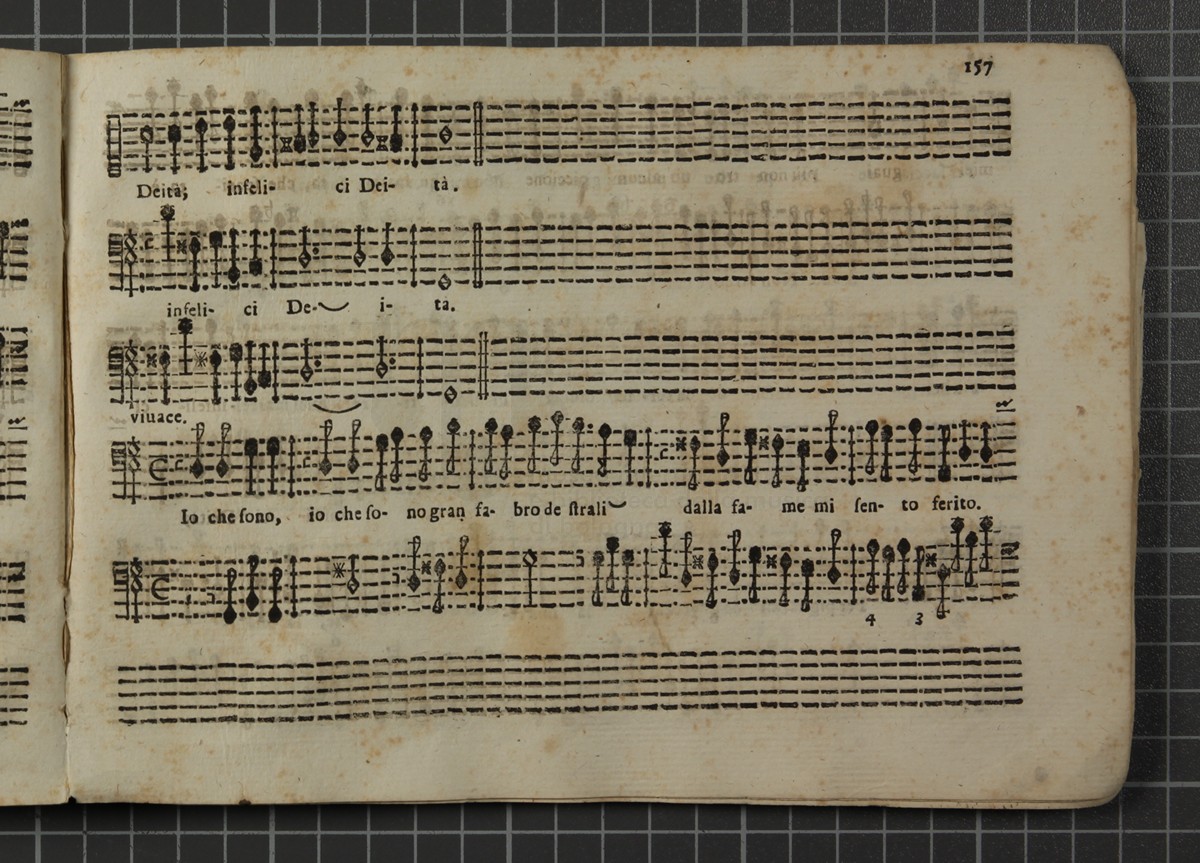 157
Deità; infeli- ci Dei- tà.
infeli- ci De- i- ta.
viuace.
Io che ſono, io che ſo- no gran fa- bro de ſtrali dalla fa- me mi ſen- to ferito.
4 3